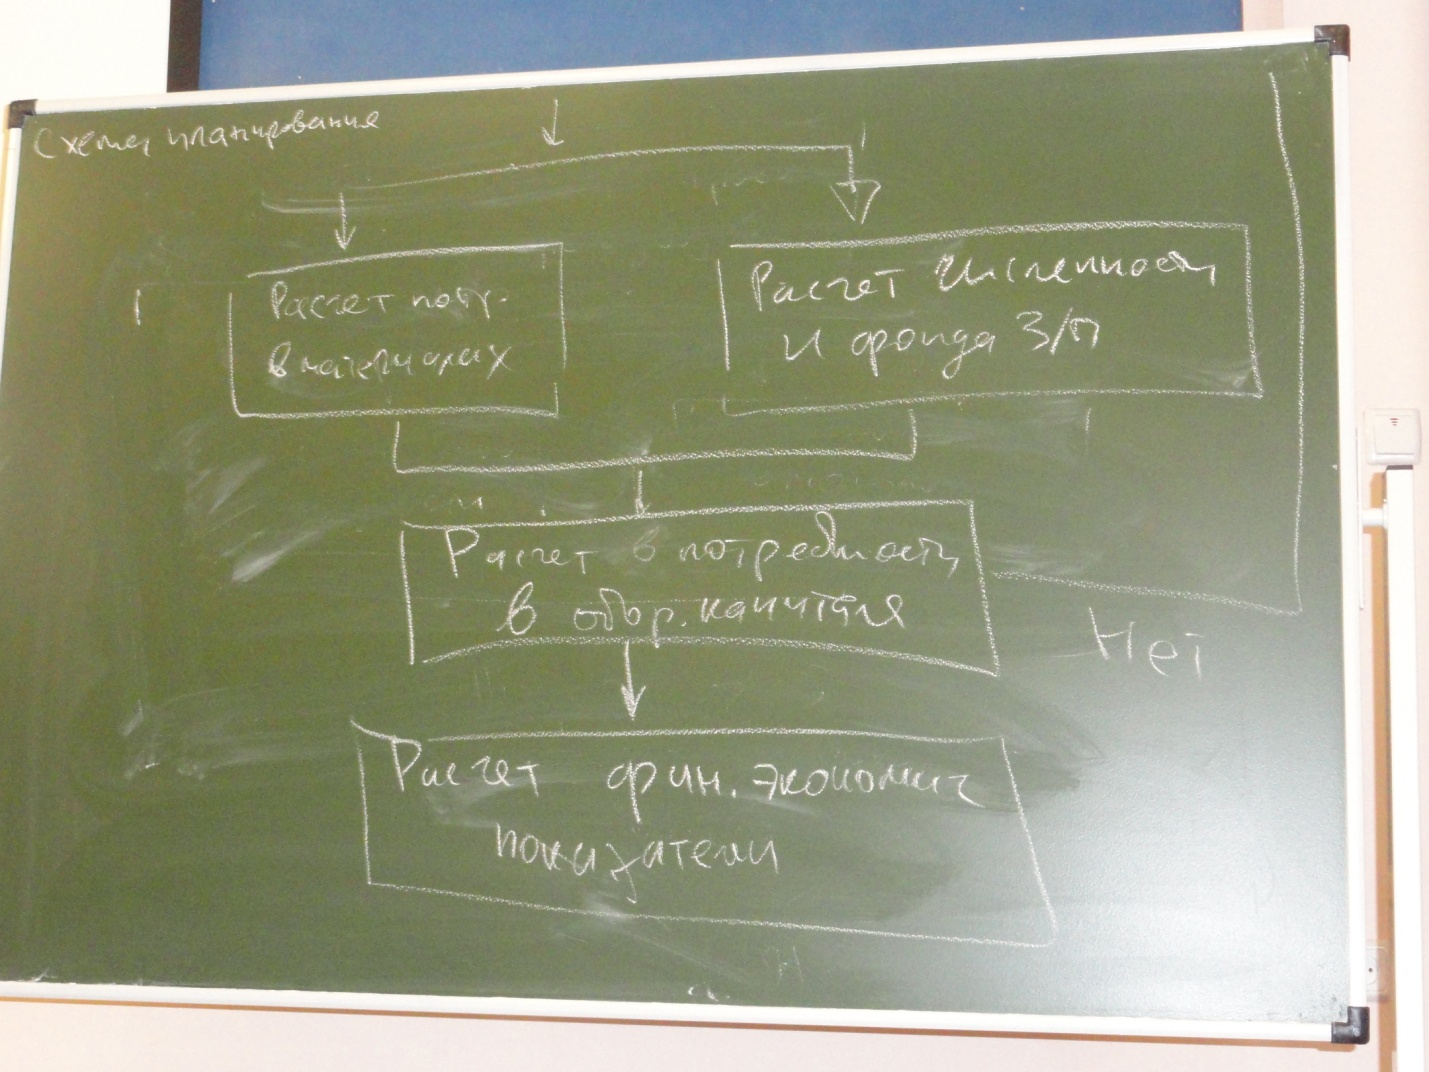 Схема планирования
Расчет потр.
в материалах
Расчет численности
и фонда З/П
Расчет в потребность
в обор. капитале
Нет
Расчет фин. экономич
показатели